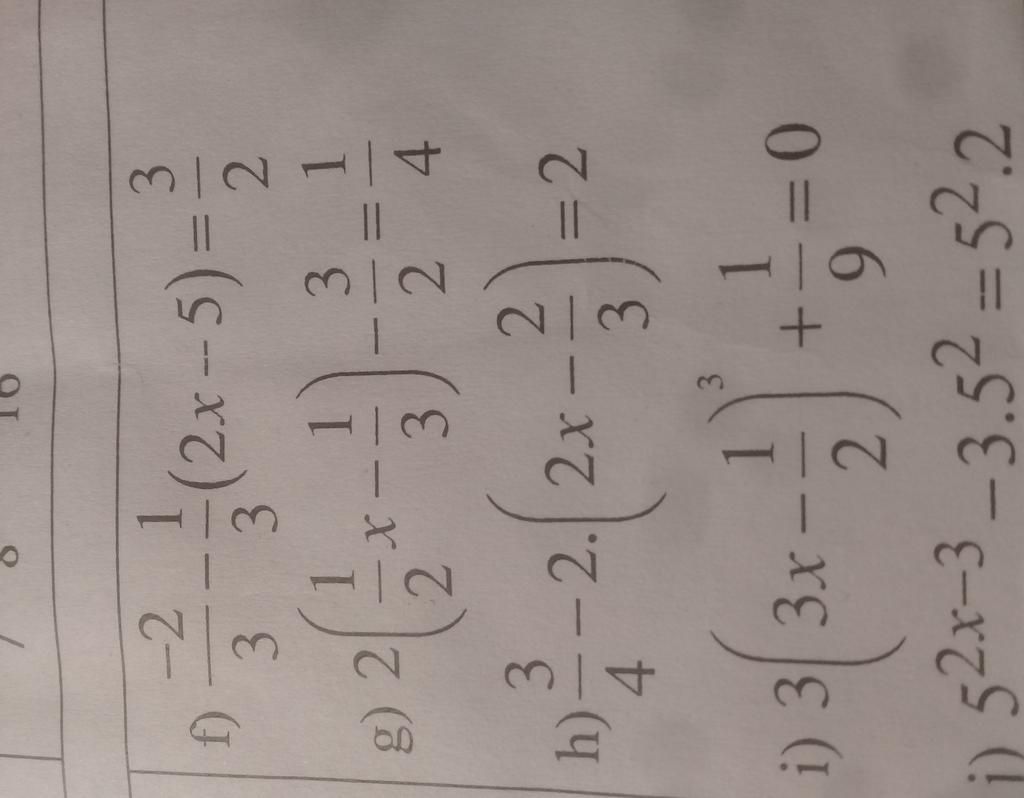 8 16
f) \frac{-2}{3} - \frac{1}{3}(2x - 5) = \frac{3}{2}
g) 2\left(\frac{1}{2}x - \frac{1}{3}\right) - \frac{3}{2} = \frac{1}{4}
h) \frac{3}{4} - 2.\left(2x - \frac{2}{3}\right) = 2
i) 3\left(3x - \frac{1}{2}\right)^3 + \frac{1}{9} = 0
j) 5^{2x-3} - 3.5^2 = 5^2.2